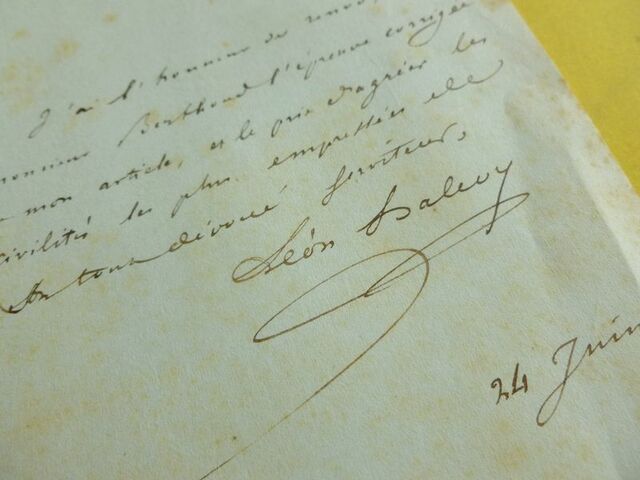 J'ai l'honneur de
Monsieur Berthoud l'épreuve corrigée
mon article, et le prie d'agréer les
civilités les plus empressées de
Son tout dévoué Serviteur,
Léon Halevy
24 Juin